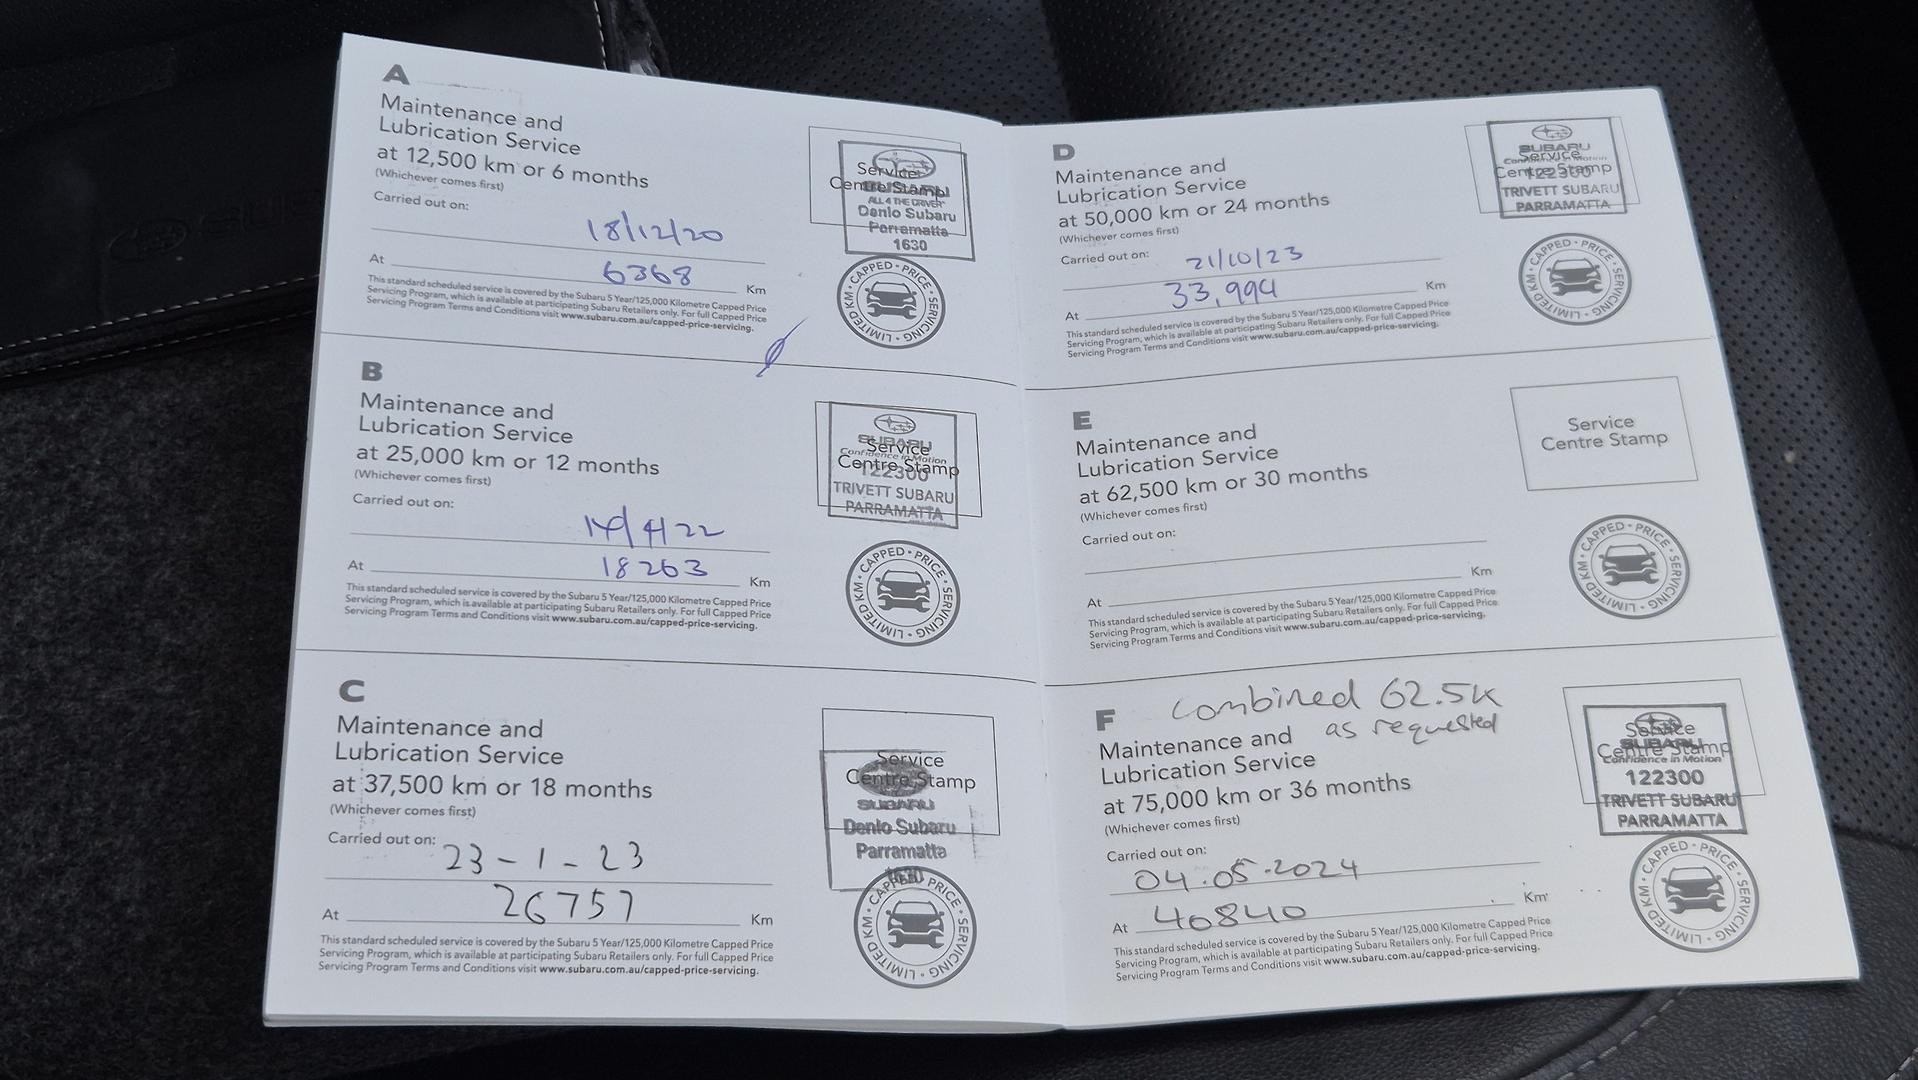 A
Maintenance and
Lubrication Service
at 12,500 km or 6 months
(Whichever comes first)
Carried out on:
18/12/20
At 6368 Km
This standard scheduled service is covered by the Subaru 5 Year/125,000 Kilometre Capped Price
Servicing Program, which is available at participating Subaru Retailers only. For full Capped
Servicing Program Terms and Conditions visit www.subaru.com.au/capped-price-servicing.
Service
Centre Stamp
ALL 4 THE DRIVER
Denlo Subaru
Parramatta
1630
LIMITED KM • CAPPED • PRICE • SERVICING •
B
Maintenance and
Lubrication Service
at 25,000 km or 12 months
(Whichever comes first)
Carried out on:
14/4/22
At 18263 Km
This standard scheduled service is covered by the Subaru 5 Year/125,000 Kilometre Capped Price
Servicing Program, which is available at participating Subaru Retailers only. For full Capped
Servicing Program Terms and Conditions visit www.subaru.com.au/capped-price-servicing.
SUBARU
Service
Confidence in Motion
Centre Stamp
122300
TRIVETT SUBARU
PARRAMATTA
LIMITED KM • CAPPED • PRICE • SERVICING •
C
Maintenance and
Lubrication Service
at 37,500 km or 18 months
(Whichever comes first)
Carried out on:
23-1-23
At 26757 Km
This standard scheduled service is covered by the Subaru 5 Year/125,000 Kilometre Capped Price
Servicing Program, which is available at participating Subaru Retailers only. For full Capped
Servicing Program Terms and Conditions visit www.subaru.com.au/capped-price-servicing.
Service
Centre Stamp
SUBARU
Denlo Subaru
Parramatta
1630
LIMITED KM • CAPPED • PRICE • SERVICING •
D
Maintenance and
Lubrication Service
at 50,000 km or 24 months
(Whichever comes first)
Carried out on:
21/10/23
At 33,994 Km
This standard scheduled service is covered by the Subaru 5 Year/125,000 Kilometre Capped Price
Servicing Program, which is available at participating Subaru Retailers only. For full Capped Price
Servicing Program Terms and Conditions visit www.subaru.com.au/capped-price-servicing.
SUBARU
Service
Confidence in Motion
Centre Stamp
122300
TRIVETT SUBARU
PARRAMATTA
LIMITED KM • CAPPED • PRICE • SERVICING •
E
Maintenance and
Lubrication Service
at 62,500 km or 30 months
(Whichever comes first)
Carried out on:
At Km
This standard scheduled service is covered by the Subaru 5 Year/125,000 Kilometre Capped Price
Servicing Program, which is available at participating Subaru Retailers only. For full Capped Price
Servicing Program Terms and Conditions visit www.subaru.com.au/capped-price-servicing.
Service
Centre Stamp
LIMITED KM • CAPPED • PRICE • SERVICING •
F
combined 62.5K
as requested
Maintenance and
Lubrication Service
at 75,000 km or 36 months
(Whichever comes first)
Carried out on:
04.05.2024
At 40840 Km
This standard scheduled service is covered by the Subaru 5 Year/125,000 Kilometre Capped Price
Servicing Program, which is available at participating Subaru Retailers only. For full Capped Price
Servicing Program Terms and Conditions visit www.subaru.com.au/capped-price-servicing.
Service
SUBARU
Centre Stamp
Confidence in Motion
122300
TRIVETT SUBARU
PARRAMATTA
LIMITED KM • CAPPED • PRICE • SERVICING •